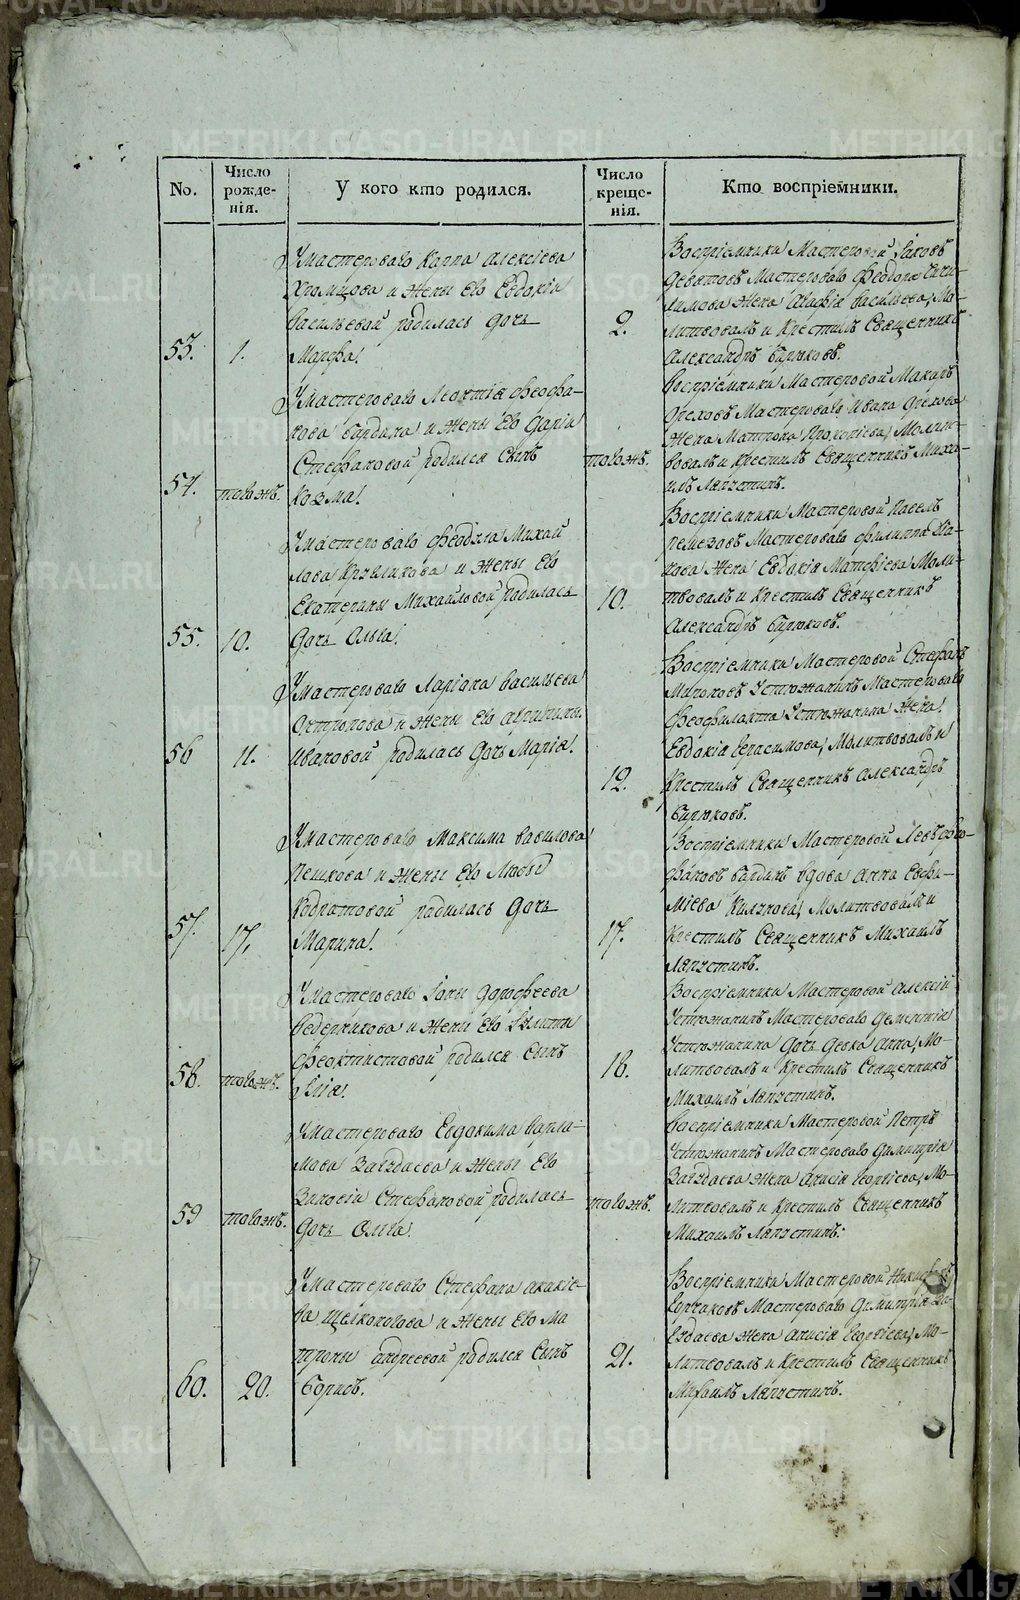 No.
Число рожде-
нія.
У кого кто родился.
Число креще-
нія.
Кто воспріемники.
53.
1.
У мастероваго Карпа Алексіева
Хромцова и жены его Евдокіи
Васильевой родилась дочь
Марфа.
2.
Воспріемники Мастеровой Іаковъ
Девятовъ Мастероваго Феодора
жена Агафія Васильева, Мо-
литвовалъ и Крестилъ Священникъ
Александръ Бирюковъ.
54.
тогожъ.
У мастероваго Леонтія Феофа-
нова Бардина и жены его Дарьи
Стефановой родился сынъ
Козма.
тогожъ.
Воспріемники Мастеровой Макаръ
Ореховъ Мастероваго Ивана Орехова
жена Матрона Прокопіева, Молит-
вовалъ и Крестилъ Священникъ Миха-
илъ Ляпустинъ.
55.
10.
У мастероваго Феодула Михай
лова и жены его
Екатерины Михайловой родилась
дочь Ольга.
10.
Воспріемники Мастеровой Павелъ
Ремезовъ Мастероваго Филиппа
жена Евдокія Матфіева Моли-
твовалъ и Крестилъ Священникъ
Александръ Бирюковъ.
56
11.
У мастероваго Ларіона Васильева
и жены его Агрипины
Ивановой родилась дочь Марія.
12.
Воспріемники Мастеровой Стефанъ
Устюжанинъ Мастероваго
Феофилакта Устюжанина жена
Евдокія Герасимова, Молитвовалъ и
Крестилъ Священникъ Александръ
Бирюковъ.
57.
17.
У мастероваго Максима Вавилова
Пешкова и жены его Любви
Кодратовой родилась дочь
Марина.
17.
Воспріемники Мастеровой Левъ Фео-
фановъ Бардинъ вдова Анна Евфи-
міева Молитвовалъ и
Крестилъ Священникъ Михаилъ
Ляпустинъ.
58.
тогожъ.
У мастероваго Іоны Дорофеева
Ведерникова и жены его Іулиты
Феоктистовой родился сынъ
Илія.
18.
Воспріемники Мастеровой Алексій
Устюжанинъ Мастероваго Дементія
Устюжанина дочь девка Анна, Мо-
литвовалъ и Крестилъ Священникъ
Михаилъ Ляпустинъ.
59
тогожъ.
У мастероваго Евдокима Варла-
мова и жены его
Зиновіи Стефановой родилась
дочь Ольга.
тогожъ.
Воспріемники Мастеровой Петръ
Устюжанинъ Мастероваго Димитрія
жена Анисія Георгіева, Мо-
литвовалъ и Крестилъ Священникъ
Михаилъ Ляпустинъ.
60.
20.
У мастероваго Стефана Акакіе-
ва Щелконогова и жены его Ма
троны Андреевой родился сынъ
Борисъ.
21.
Воспріемники Мастеровой
Мастероваго Димитрія
жена Анисія Георгіева, Мо-
литвовалъ и Крестилъ Священникъ
Михаилъ Ляпустинъ.
METRIKI.GASO-URAL.RU